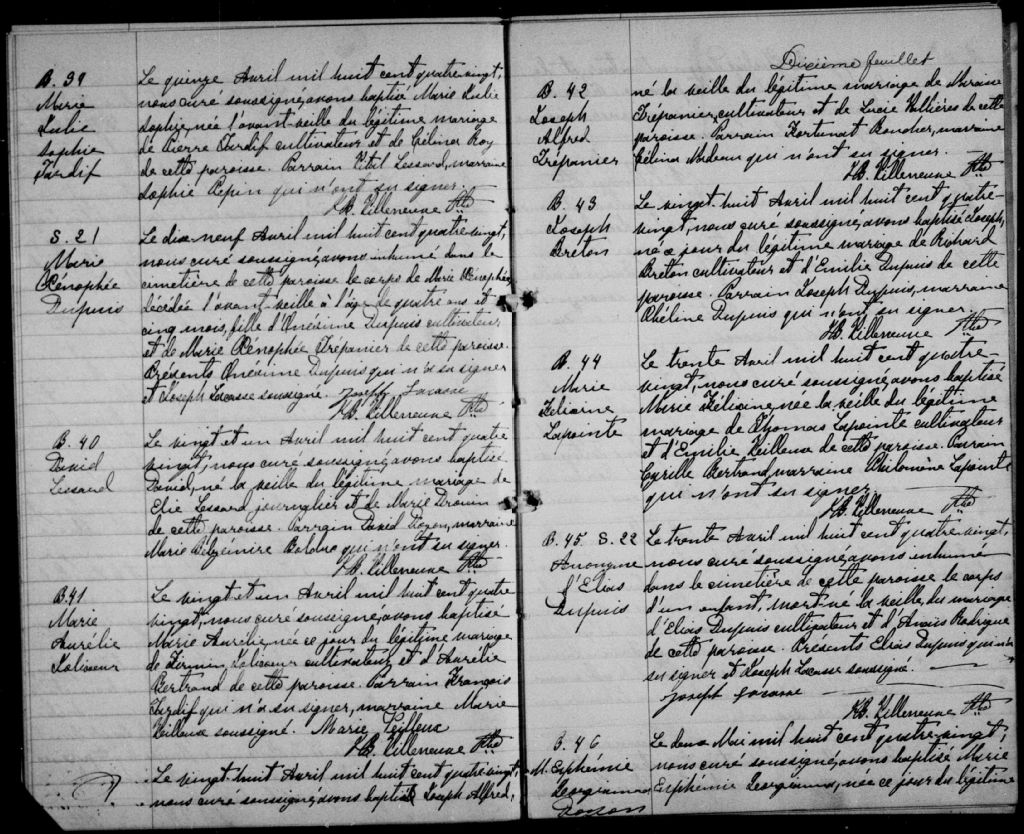 B. 39
Marie
Julie
Sophie
Tardif
Le quinze Avril mil huit cent quatre-vingt,
nous curé soussigné, avons baptisé Marie Julie
Sophie, née l'avant-veille du légitime mariage
de Pierre Tardif cultivateur et de Célina Roy
de cette paroisse. Parrain Vital Lessard, marraine
Sophie Pepin qui n'ont su signer.
J.B. Villeneuve Ptre
S. 21
Marie
Xénophée
Dupuis
Le dix-neuf Avril mil huit cent quatre-vingt,
nous curé soussigné, avons inhumé dans le
cimetière de cette paroisse le corps de Marie Xénophée
décédée l'avant-veille à l'âge de quatre ans et
cinq mois, fille d'Onésime Dupuis cultivateur
et de Marie Xénophée Trépanier de cette paroisse.
Présents Onésime Dupuis qui n'a su signer
et Joseph Lacasse soussigné. Joseph Lacasse
J.B. Villeneuve Ptre
B. 40
David
Lessard
Le vingt et un Avril mil huit cent quatre
vingt, nous curé soussigné, avons baptisé
David, né la veille du légitime mariage de
Elie Lessard journalier et de Marie Drouin
de cette paroisse. Parrain David Doyon, marraine
Marie Delzémire Bolduc qui n'ont su signer.
J.B. Villeneuve Ptre
B. 41
Marie
Aurélie
Jolicoeur
Le vingt et un Avril mil huit cent quatre
vingt, nous curé soussigné, avons baptisé
Marie Aurélie, née ce jour du légitime mariage
de Firmin Jolicoeur cultivateur et d'Aurélie
Bertrand de cette paroisse. Parrain François
Tardif qui n'a su signer, marraine Marie
Veilleux soussigné. Marie Veilleux
J.B. Villeneuve Ptre
Le vingt-huit Avril mil huit cent quatre-vingt,
nous curé soussigné, avons baptisé Joseph Alfred,
Dixième feuillet
B. 42
Joseph
Alfred
Trépanier
né la veille du légitime mariage de
Trépanier, cultivateur et de Lucie Vallières de cette
paroisse. Parrain Fortunat Boucher, marraine
Célina Nadeau qui n'ont su signer.
J.B. Villeneuve Ptre
B. 43
Joseph
Breton
Le vingt-huit Avril mil huit cent quatre-
vingt, nous curé soussigné, avons baptisé Joseph,
né ce jour du légitime mariage de Richard
Breton cultivateur et d'Emilie Dupuis de cette
paroisse. Parrain Joseph Dupuis, marraine
Obéline Dupuis qui n'ont su signer.
J.B. Villeneuve Ptre
B. 44
Marie
Féliciene
Lapointe
Le trente Avril mil huit cent quatre-
vingt, nous curé soussigné, avons baptisé
Marie Féliciene, née la veille du légitime
mariage de Thomas Lapointe cultivateur
et d'Emilie Veilleux de cette paroisse. Parrain
Cyrille Bertrand, marraine Philomène Lapointe
qui n'ont su signer
J.B. Villeneuve Ptre
B. 45 S. 22
Anonyme
d'Elias
Dupuis
Le trente Avril mil huit cent quatre-vingt,
nous curé soussigné, avons inhumé
dans le cimetière de cette paroisse le corps
d'un enfant, mort-né la veille, du mariage
d'Elias Dupuis cultivateur et d'Anaïs Rodrigue
de cette paroisse. Présents Elias Dupuis qui n'a
su signer et Joseph Lacasse soussigné.
Joseph Lacasse
J.B. Villeneuve Ptre
B. 46
M. Euphémie
Georgianna
Doyon
Le deux Mai mil huit cent quatre-vingt,
nous curé soussigné, avons baptisé Marie
Euphémie Georgianna, née ce jour du légitime